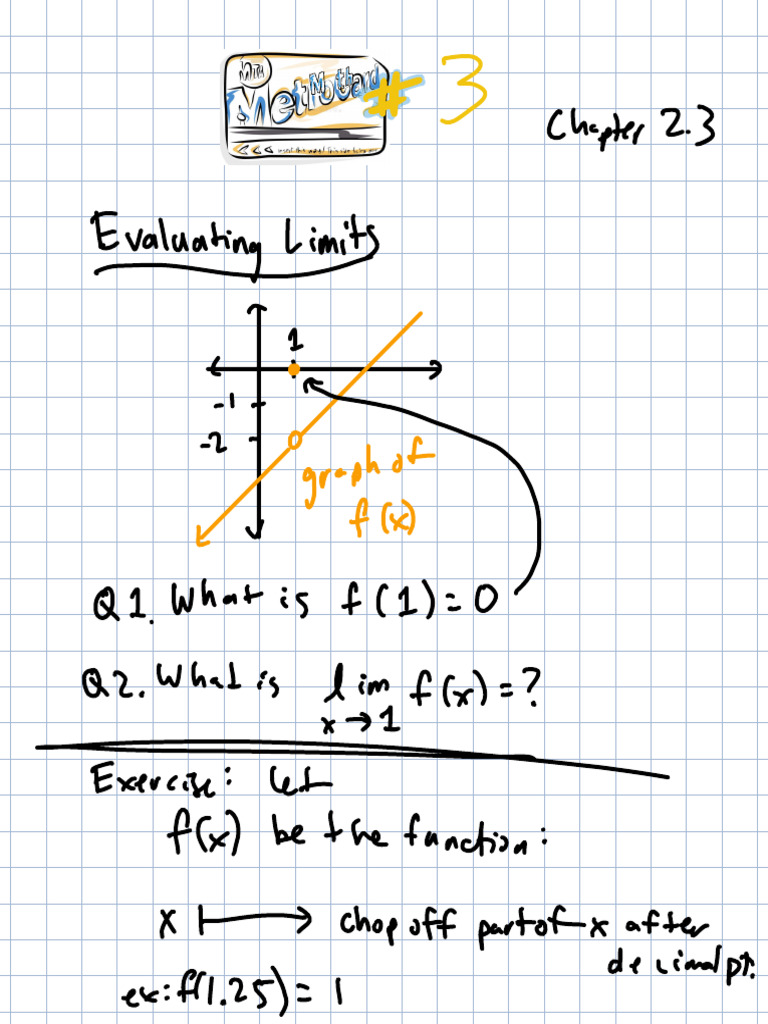 MTA
MetroCard
#3
Chapter 2.3
Evaluating Limits
1
-1
-2
graph of
f(x)
Q1. What is f(1) = 0
Q2. What is lim f(x) = ?
x → 1
Exercise: Let
f(x) be the function:
x ↦ chop off part of x after
decimal pt.
ex: f(1.25) = 1